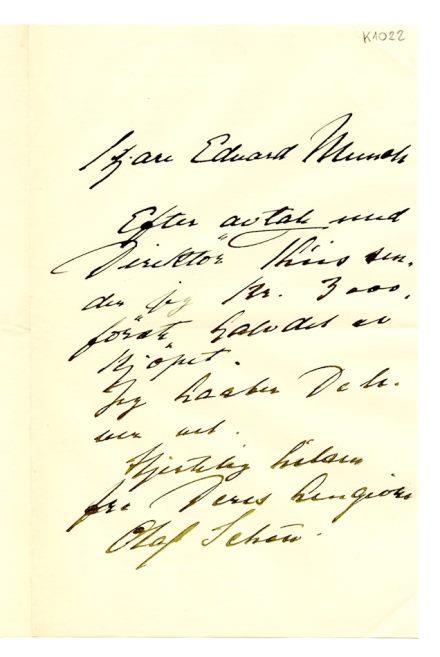 K1022
Kjære Edvard Munch
Efter avtale med
Direktör Thiis sen-
der jeg Kr. 3000,
förste halvdel av
Kjöpet.
Jeg haaber De le-
ver vel.
Hjertelig hilsen
fra Deres hengivne
Olaf Schou.